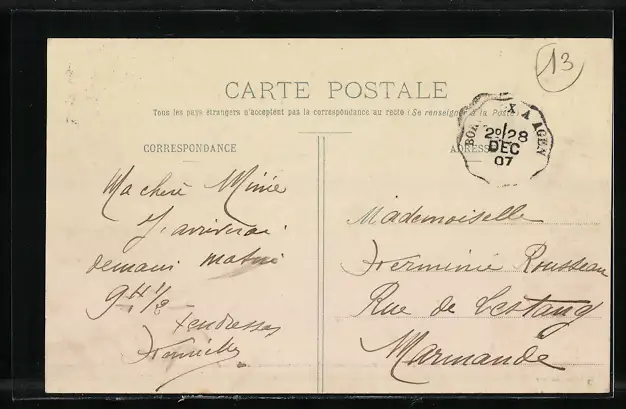 13
CARTE POSTALE
Tous les pays étrangers n'acceptent pas la correspondance au recto (Se renseigner à la Poste)
CORRESPONDANCE
ADRESSE
BORDEAUX A AGEN
28
DEC
07
Ma chère Minie
J'arriverai
demain matin
9H 1/2
tendresses
Mademoiselle
Herminie Rousseau
Rue de Lestang
Marmande